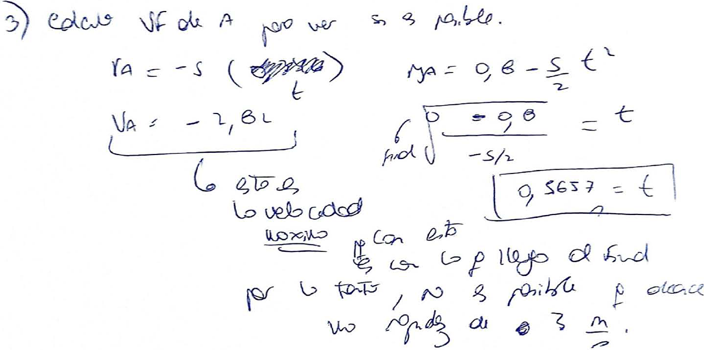 3) Calculo Vf de A para ver si es posible.
VA = -5 ( t )
yA = 0,8 - 5/2 t²
VA = -2,82
√(0 - 0,8 / -5/2) = t
final
0,5657 = t
esto es
la velocidad
máximo
con esto
es con lo q llega al final
por lo tanto, no es posible q alcance
una rapidez de 3 m/s.